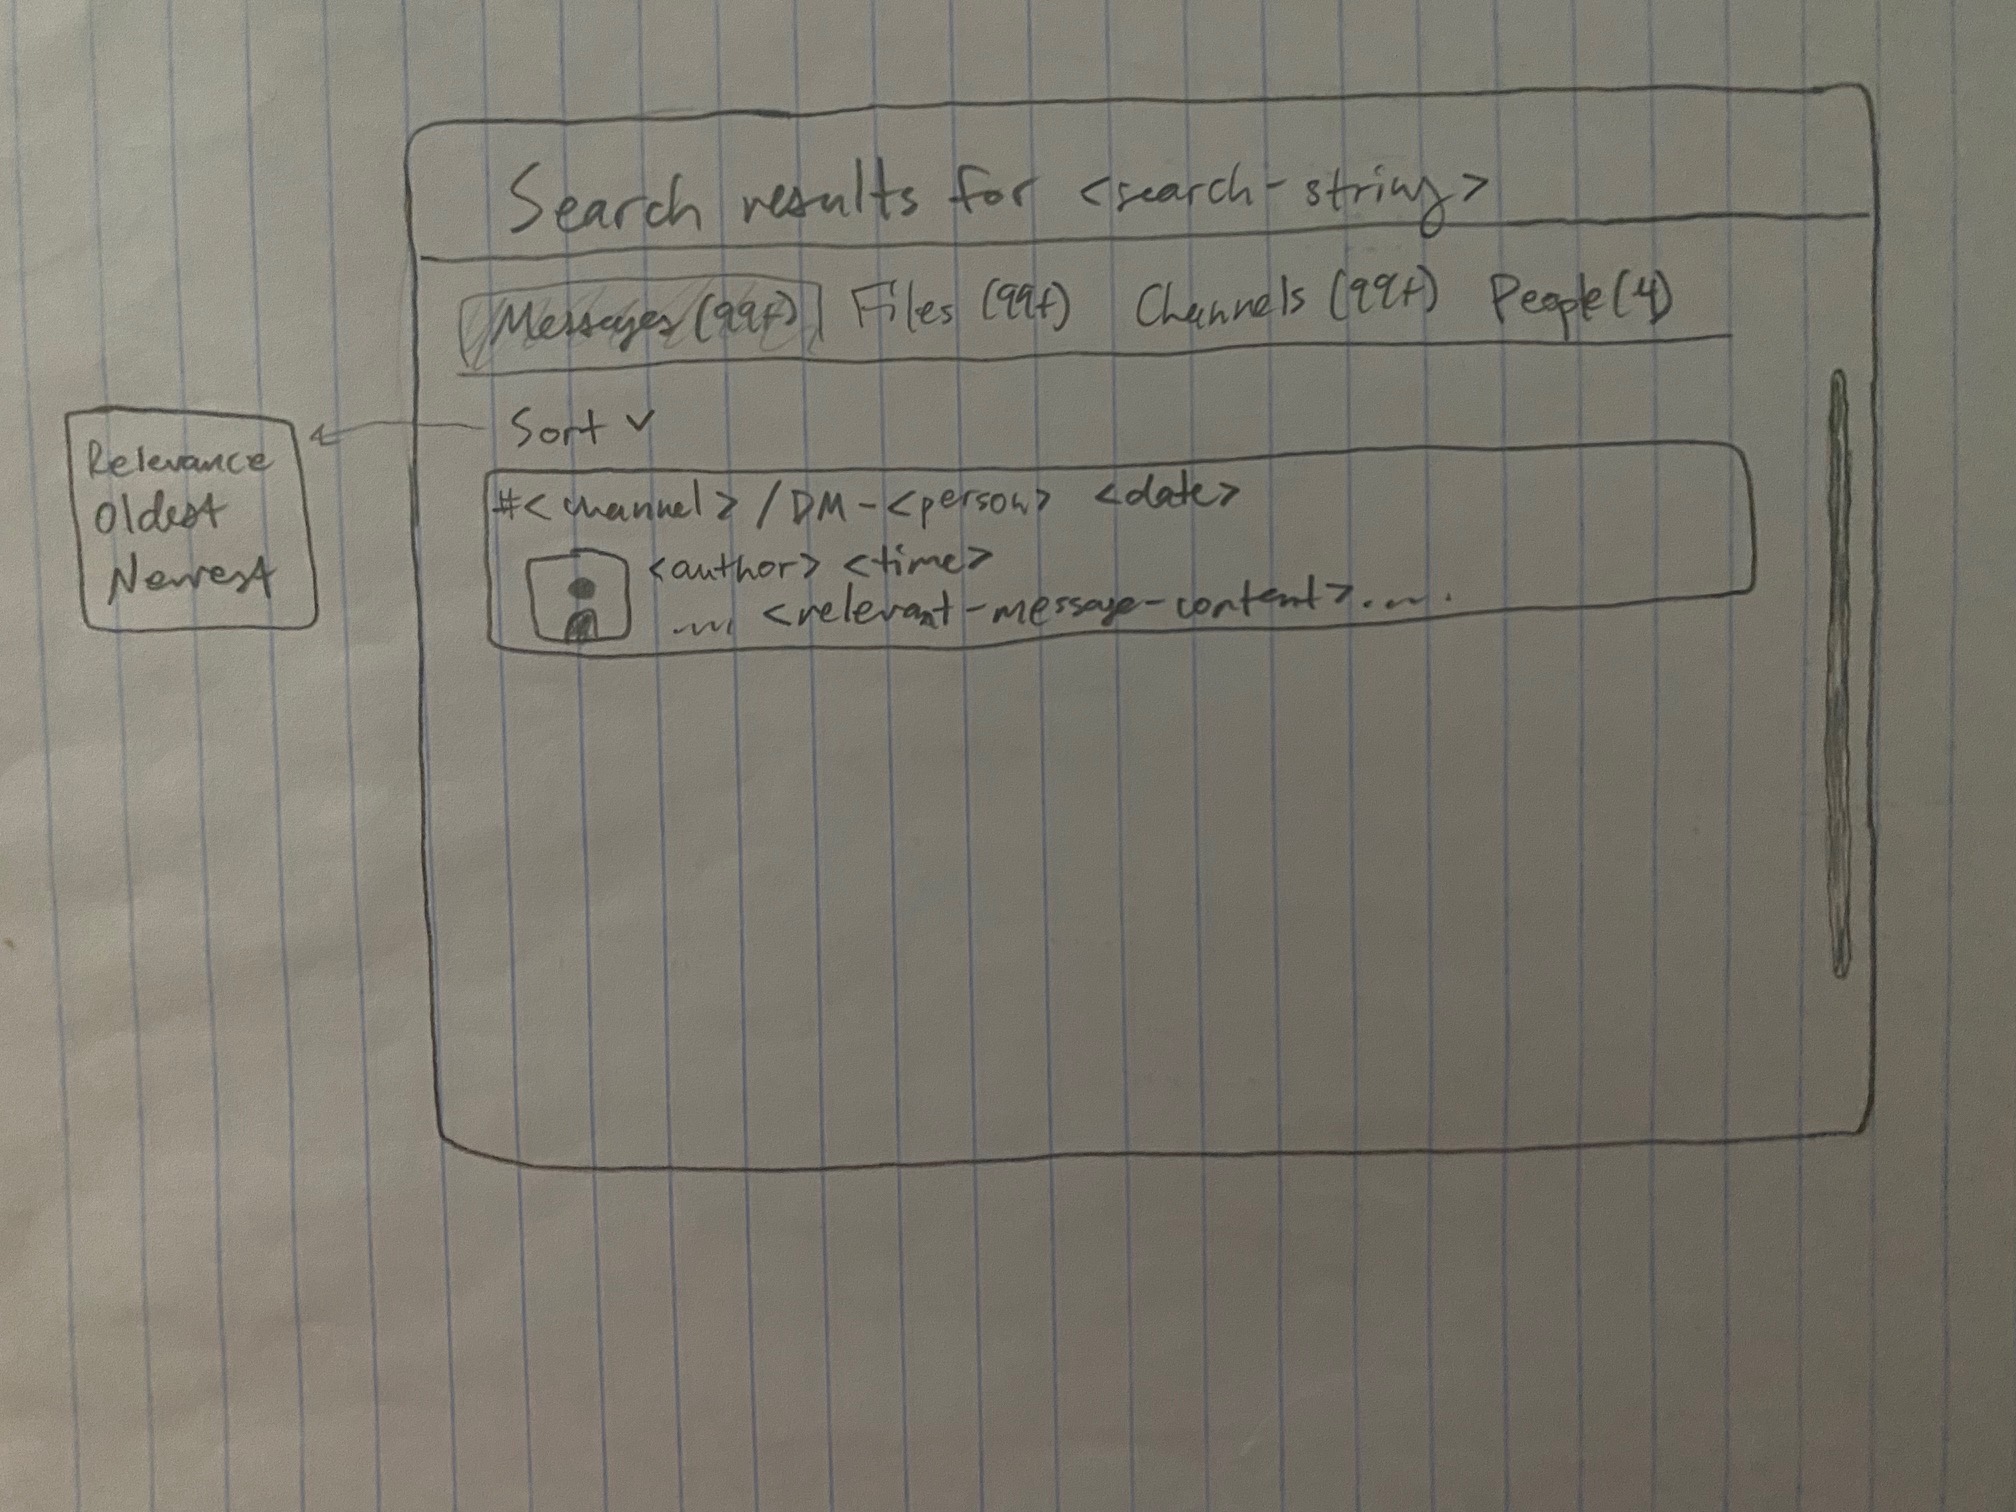 Search results for <search-string>
Messages (99+) Files (99+) Channels (99+) People (4)
Sort
Relevance
Oldest
Newest
#<channel> / DM-<person> <date>
<author> <time>
.... <relevant-message-content>.....